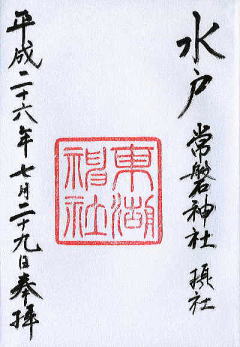 水戸 常磐神社 摂社
東湖神社
平成二十六年七月二十九日奉拝